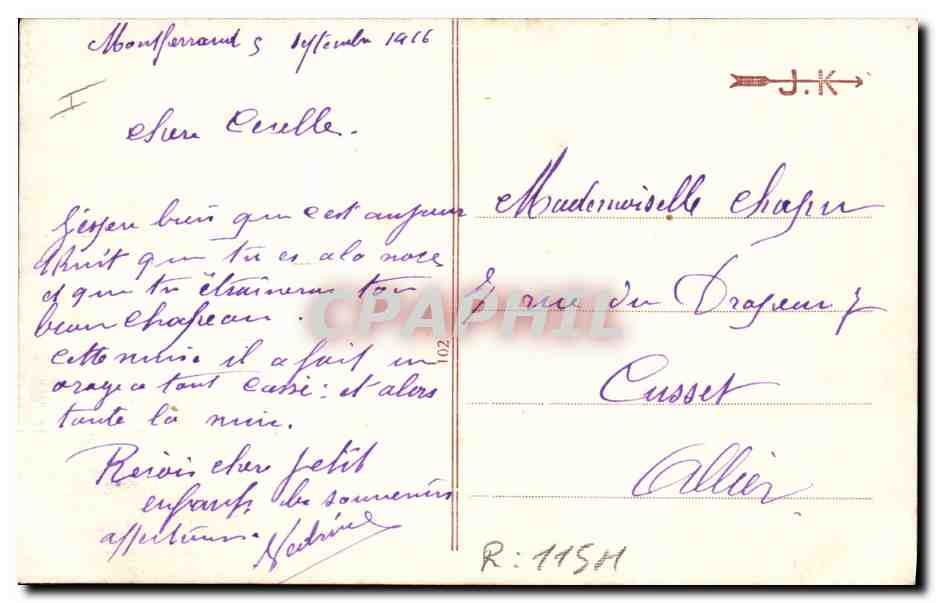 Montferrand 5 septembre 1916
I
chere
J'espere bien que c'est aujour
d'huit que tu es a la noce
et que tu étraineras ton
beau chapeau.
cette nuit il a fait un
orage a tout cassé : et alors
toute la nuit.
Resois cher petit
enfant, les souvenirs
affectueux.
102
J.K
Mademoiselle
7 rue du 7
Cusset
Allier
R : 115H
CPAPHIL